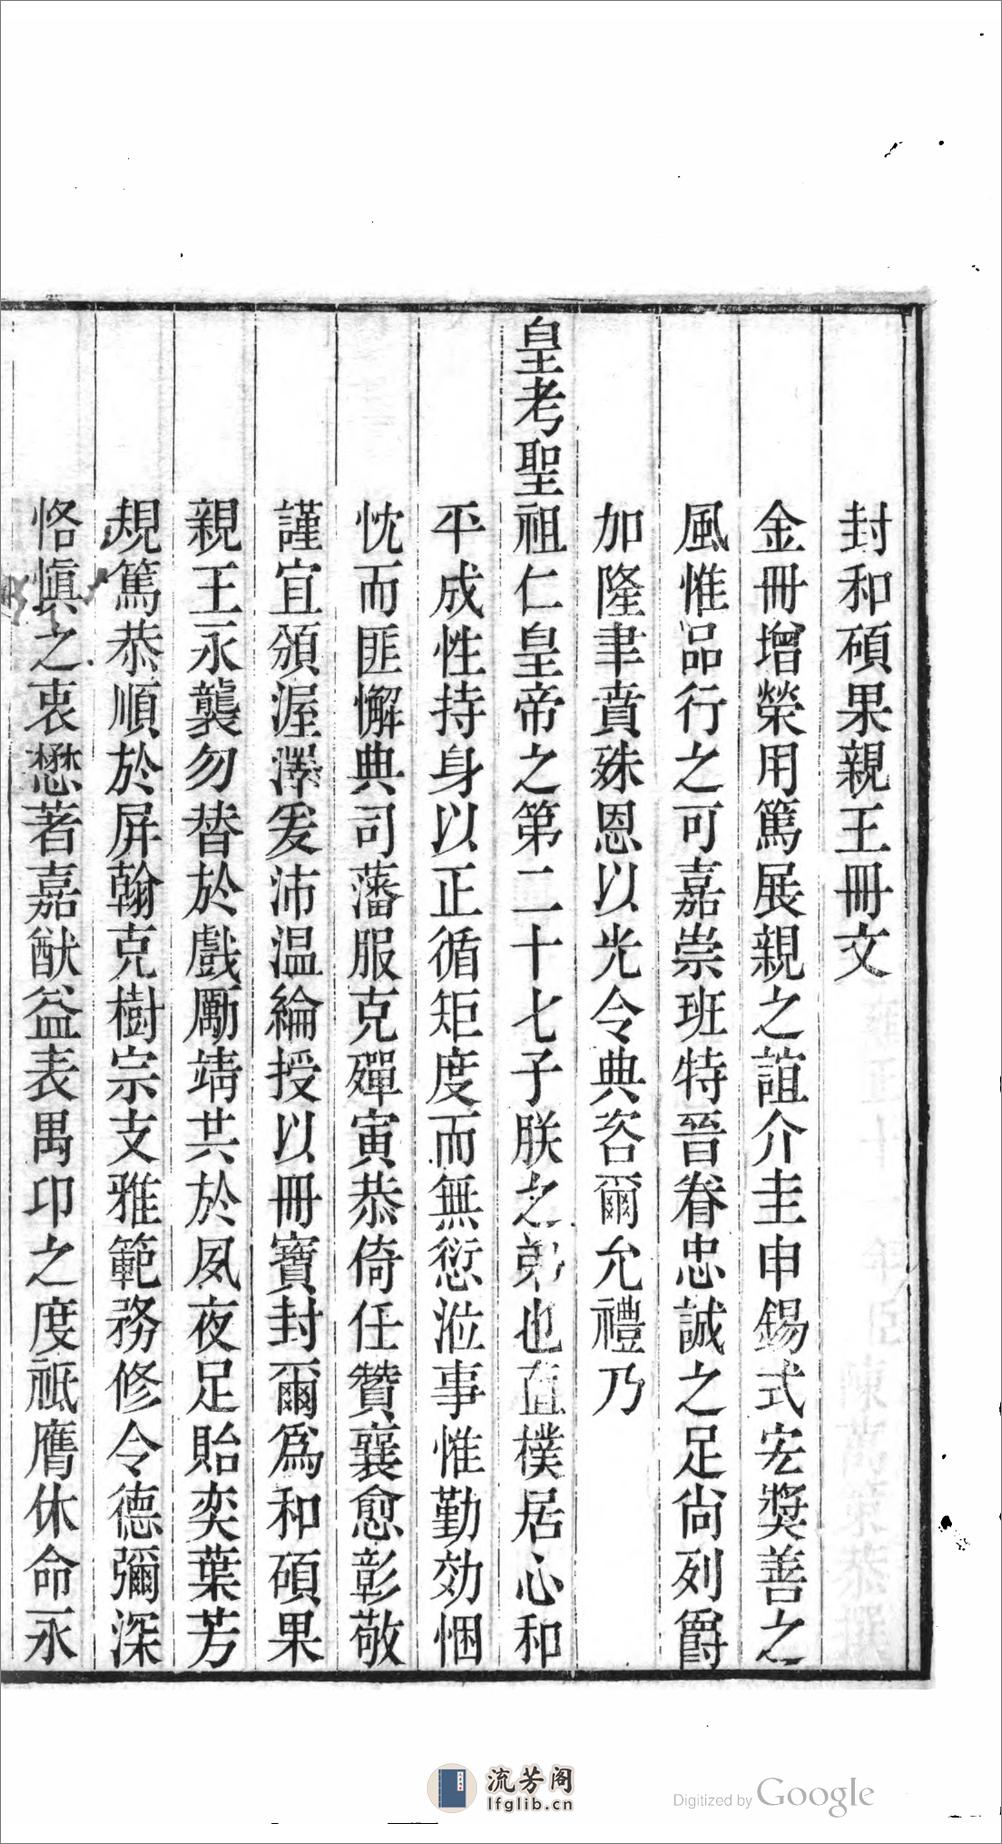 封和碩果親王冊文
金冊增榮用篤展親之誼介圭申錫式宏獎善之
風惟品行之可嘉崇班特晉眷忠誠之足尙列爵
加隆聿賁殊恩以光令典咨爾允禮乃
皇考聖祖仁皇帝之第二十七子朕之弟也直樸居心和
平成性持身以正循矩度而無愆涖事惟勤効悃
忱而匪懈典司藩服克殫寅恭倚任贊襄愈彰敬
謹宜頒渥澤爰沛温綸授以冊寶封爾爲和碩果
親王永襲勿替於戲勵靖共於夙夜足貽奕葉芳
規篤恭順於屏翰克樹宗支雅範務修令德彌深
恪慎之衷懋著嘉猷益表禺卬之度祗膺休命永
流芳阁
lfglib.cn
Digitized by Google